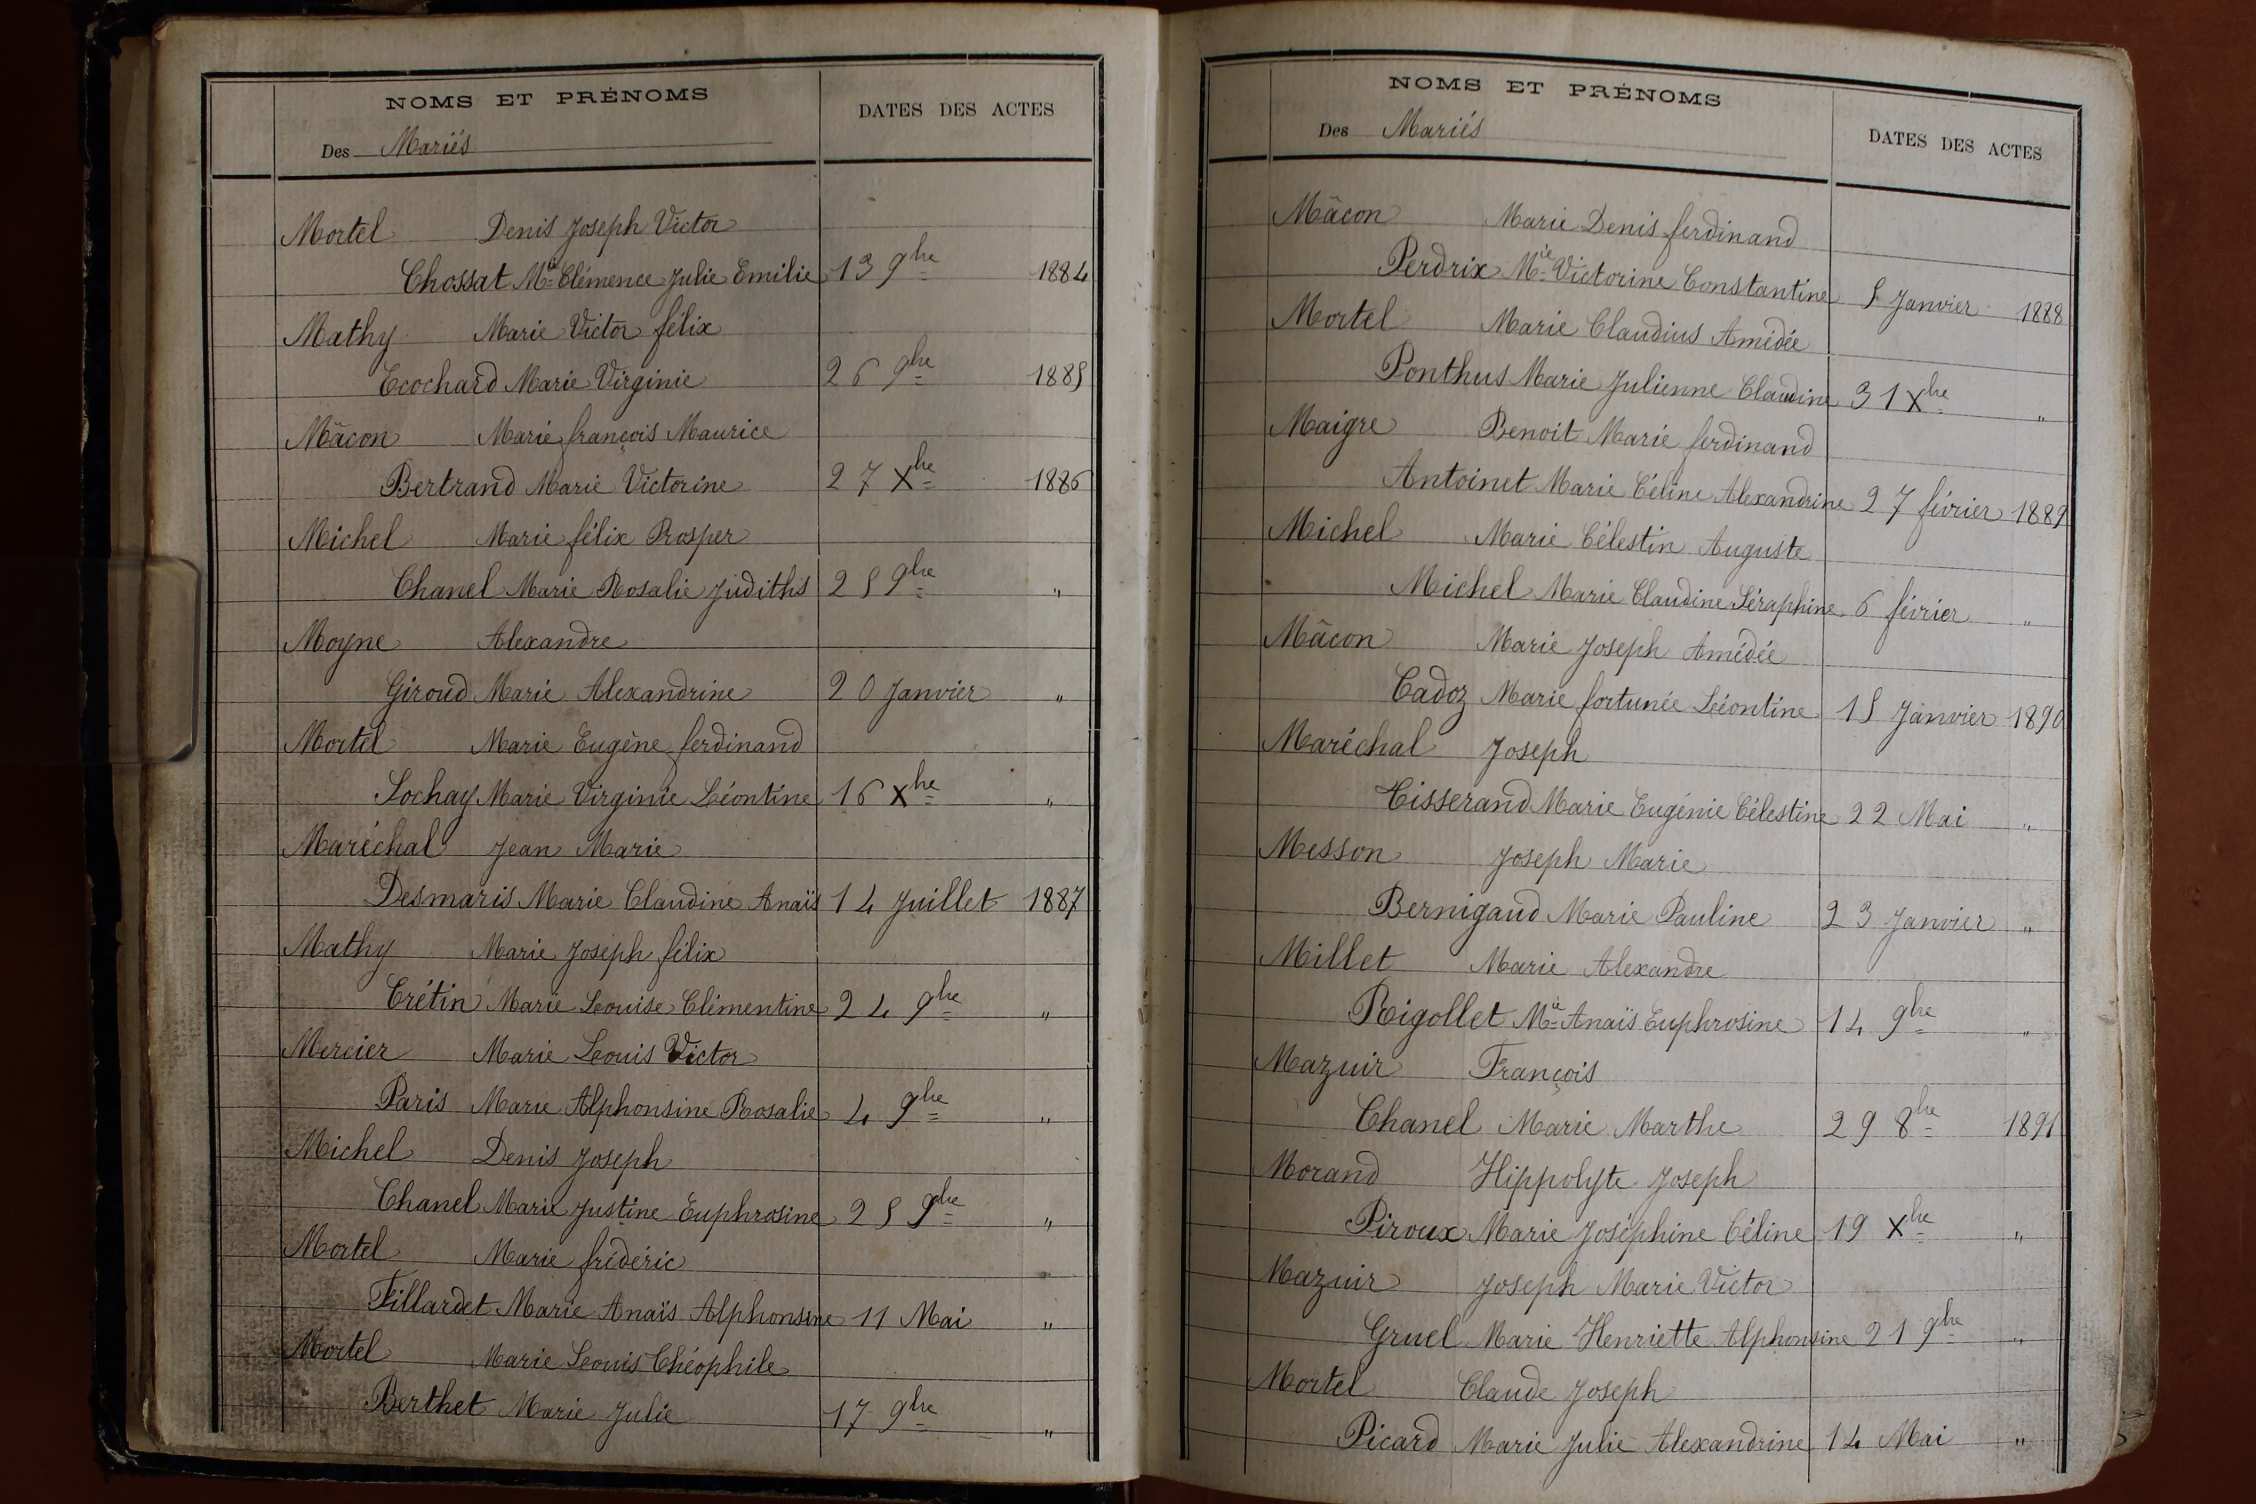 NOMS ET PRÉNOMS
DATES DES ACTES
Des Mariés
Mortel Denis Joseph Victor
Chossat Mie Clémence Julie Emilie 13 9bre 1884
Mathy Marie Victor félix
Ecochard Marie Virginie 26 9bre 1885
Mâcon Marie françois Maurice
Bertrand Marie Victorine 27 Xbre 1886
Michel Marie félix Prosper
Chanel Marie Rosalie Judiths 25 9bre "
Moyne Alexandre
Giroud Marie Alexandrine 20 Janvier "
Mortel Marie Eugène ferdinand
Sochay Marie Virginie Léontine 16 Xbre "
Maréchal Jean Marie
Desmaris Marie Claudine Anaïs 14 Juillet 1887
Mathy Marie Joseph félix
Crétin Marie Louise Clémentine 24 9bre "
Mercier Marie Louis Victor
Paris Marie Alphonsine Rosalie 4 9bre "
Michel Denis Joseph
Chanel Marie Justine Euphrosine 25 9bre "
Mortel Marie frédéric
Fillardet Marie Anaïs Alphonsine 11 Mai "
Mortel Marie Louis Théophile
Berthet Marie Julie 17 9bre "
NOMS ET PRÉNOMS
DATES DES ACTES
Des Mariés
Mâcon Marie Denis ferdinand
Perdrix Mie Victorine Constantine 5 Janvier 1888
Mortel Marie Claudius Amédée
Ponthus Marie Julienne Claudine 31 Xbre "
Maigre Benoit Marie ferdinand
Antoinet Marie Céline Alexandrine 27 février 1889
Michel Marie Célestin Auguste
Michel Marie Claudine Séraphine 6 février "
Mâcon Marie Joseph Amédée
Cadoz Marie fortunée Léontine 15 Janvier 1890
Maréchal Joseph
Tisserand Marie Eugénie Célestine 22 Mai "
Messon Joseph Marie
Bernigaud Marie Pauline 23 Janvier "
Millet Marie Alexandre
Rigollet Mie Anaïs Euphrosine 14 9bre "
Mazuir François
Chanel Marie Marthe 29 8bre 1891
Morand Hippolyte Joseph
Piroux Marie Joséphine Céline 19 Xbre "
Mazuir Joseph Marie Victor
Gruel Marie Henriette Alphonsine 21 9bre "
Mortel Claude Joseph
Picard Marie Julie Alexandrine 14 Mai "